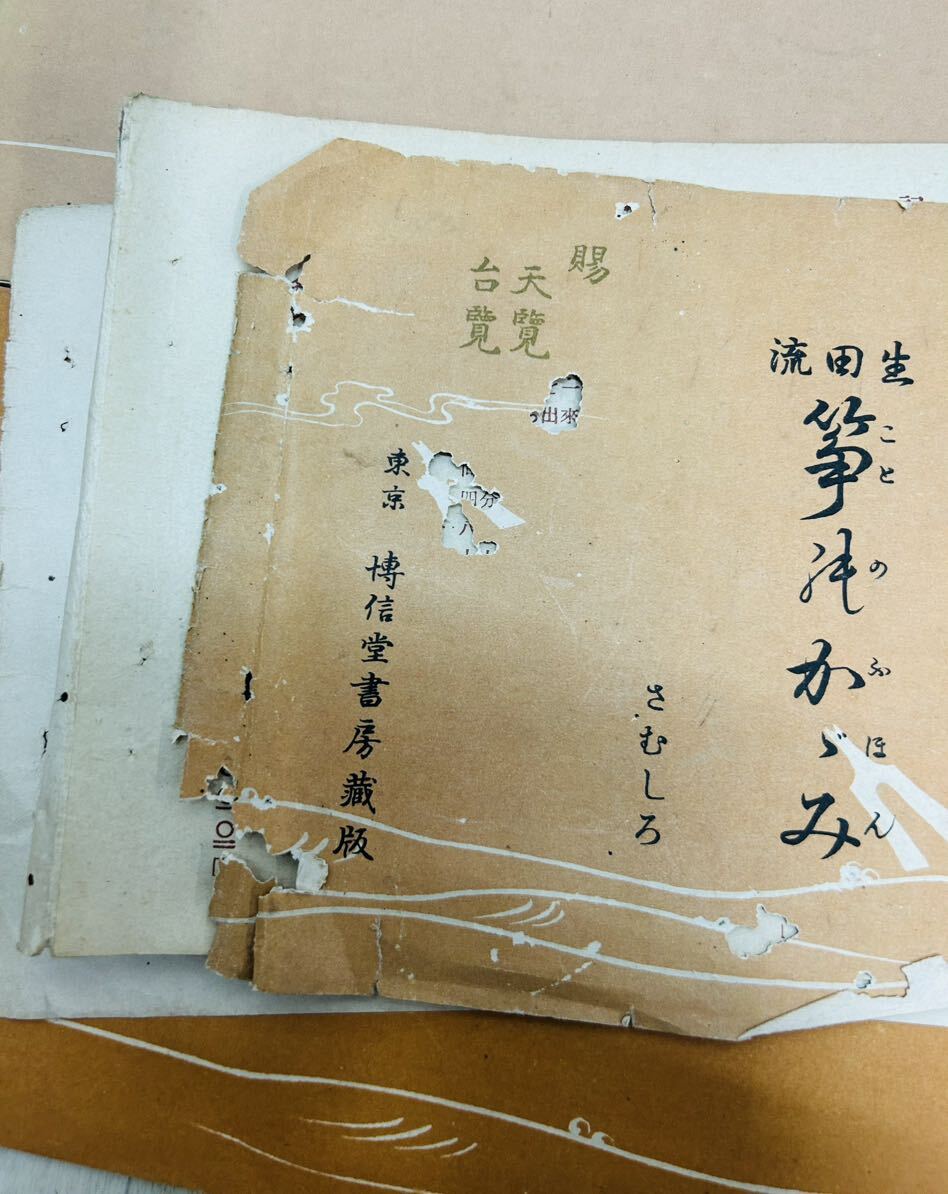 生田流
箏のかゞみ
ことのふほん
さむしろ
賜
天覽
台覽
東京 博信堂書房藏版
出來
四分
八